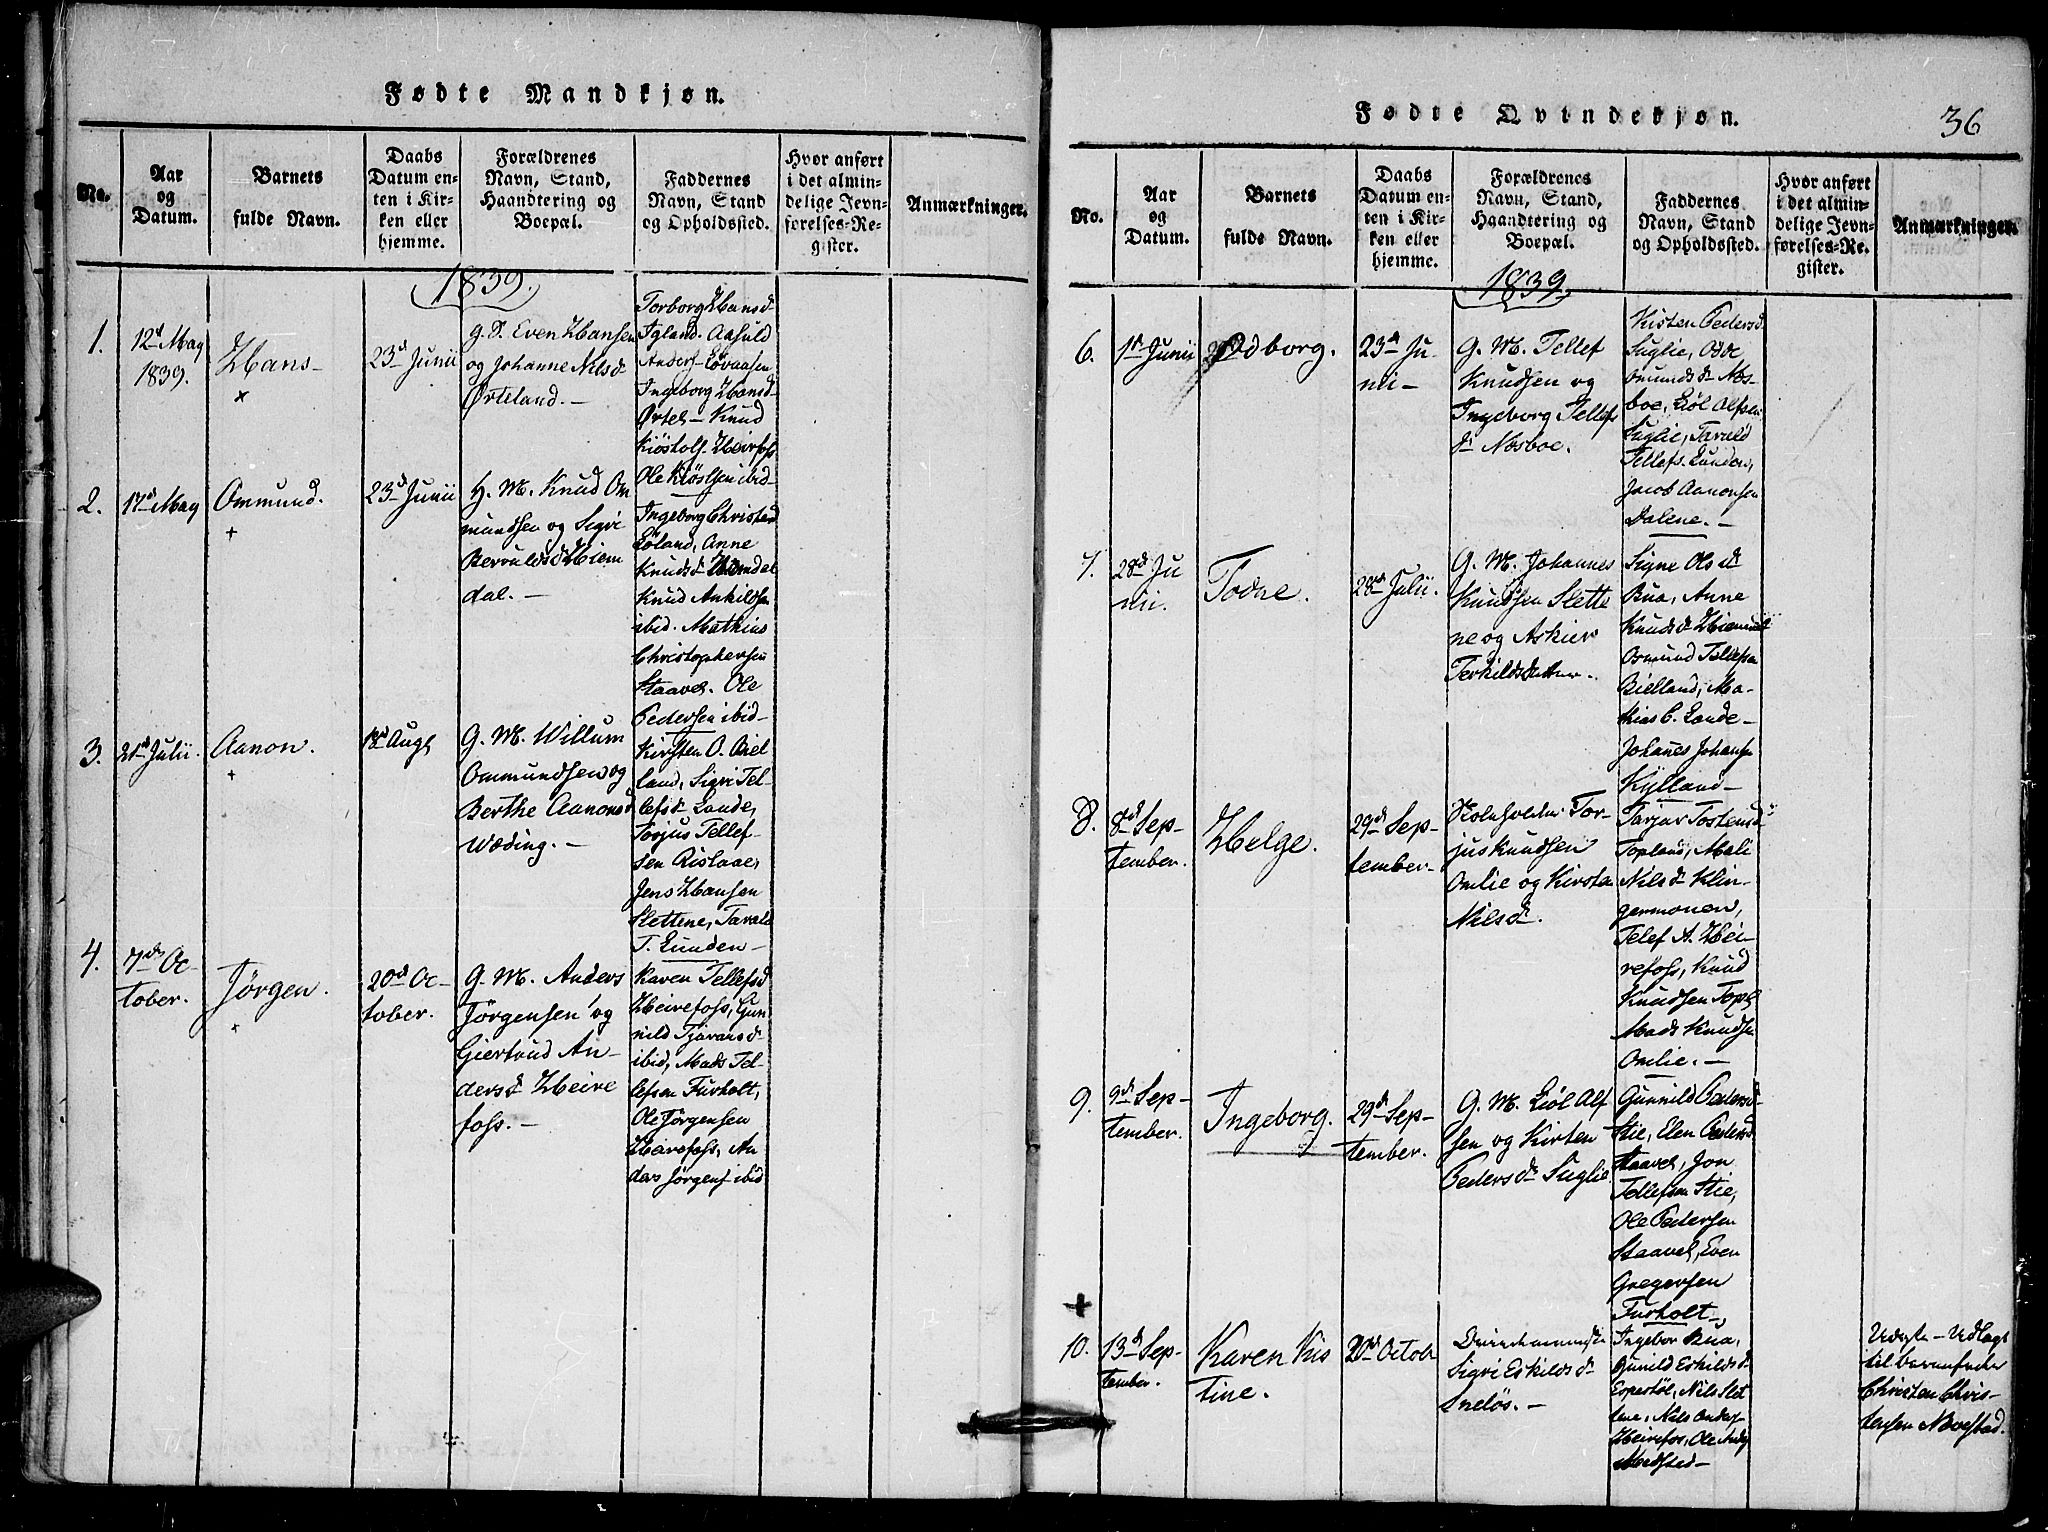 Fødte Mandkjøn.
No.
Aar
og
Datum.
Barnets
fulde Navn.
Daabs
Datum en-
ten i Kir-
ken eller
hjemme.
Forældrenes
Navn, Stand,
Haandtering og
Boepæl.
Faddernes
Navn, Stand
og Opholdssted.
Hvor anført
i det almin-
delige Jevn-
førelses-Re-
gister.
Anmærkninger.
1839.
1.
12d May
1839.
Hans-
23d Junii
g. S. Even Hansen
og Johanne Nilsd
Ørteland. –
Torborg Hansd
Igland. Aasuld
Anders- Løvaasen
Ingeborg Hansd-
Ørtel- Knud
Kiöstolf. Heirfoss
Ole Kiöstsen ibid-
2.
17d May
Ommund.
23d Junii
H. M. Knud Om
mundsen og Sigri
Bervuldsd Hiem
dal. –
Ingeborg Christend
Løland, Anne
Knudsd Hiemdal
Knud Ankildsen
ibid. Mathias
Christophersen
Staavel. Ole
Pedersen ibid-
3.
21d Julii.
Aanon.
18d Augs
G. M. Willum
Ommundsen og
Berthe Aanonsd
Wæding. –
Kirsten O. Biel
land, Sigri Tel-
lefsd Lande,
Torjus Tellef-
sen Rislaae,
Jens Hansen
Slettene, Tarald
T. Lunden –
4.
7d Oc-
tober.
Jørgen.
20d Oc-
tober.
G. M. Anders
Jørgensen og
Giertrud An-
dersd Heire
foss. –
Karen Tellefsd
Heirefoss, Gun
nild Tjøransd
ibid, Mads Tel-
lefsen Furholt,
Ole Jørgensen
Heirefoss, An
ders Jørgens ibid
Fødte Qvindekjøn.
36
No.
Aar
og
Datum.
Barnets
fulde Navn.
Daabs
Datum en-
ten i Kir-
ken eller
hjemme.
Forældrenes
Navn, Stand,
Haandtering og
Boepæl.
Faddernes
Navn, Stand
og Opholdssted.
Hvor anført
i det almin-
delige Jevn-
førelses-Re-
gister.
Anmærkninger.
1839.
6.
1st Junii
Odborg.
23d Ju-
nii –
G. M. Tellef
Knudsen og
Ingeborg Tellefs
d Næsboe.
Kisten Pedersd
Suglie, Odde
Omundsd Næs-
boe, Liøl Alfsen
Suglie, Tarald
Tellefs. Lunden,
Jacob Aanonsen
Dalene. –
7.
28d Ju
nii.
Todne.
28d Julii.
G. M. Johannes
Knudsen Slette
ne og Askier
Terkildsdatter.
Signe Olsd
Bua, Anne
Knudsd Hiemdal
Osmund Tellefsen
Bielland, Ma-
thias C. Lande –
Johanes Johansen
Kylland –
8.
8d Sep-
tember.
Helge.
29d Sep-
tember –
Pladsholden Tor-
jus Knudsen
Omlie og Kirsten
Nilsd.
Tarjær Tostensd
Topland, Mali
Nilsd Klin-
germonen,
Telef A. Hei-
refoss, Knud
Knudsen Topl.
Mads Knudsen
Omlie. –
9.
9d Sep-
tember.
Ingeborg.
29d Sep-
tember.
G. M. Liøl Alf
sen og Kirten
Pedersd Suglie
Gunnild Pedersd
Stie, Elen Pedersd
Staavel, Jon
Tellefsen Stie,
Ole Pedersen
Staavel, Even
Gregersen
Furholt –
10.
13d Sep-
tember.
Karen Kis
tine.
20d Octob
Sigri Eskildsd
Sneløs. –
Ingebor Bua,
Gunild Eskildsd
Espestøl, Nils Slet
tene, Nils Anders
Heirefos, Ole Anders
Medstad –
Uægte – Udlagt
til barnefader
Christen Chris-
tensen Moestad.